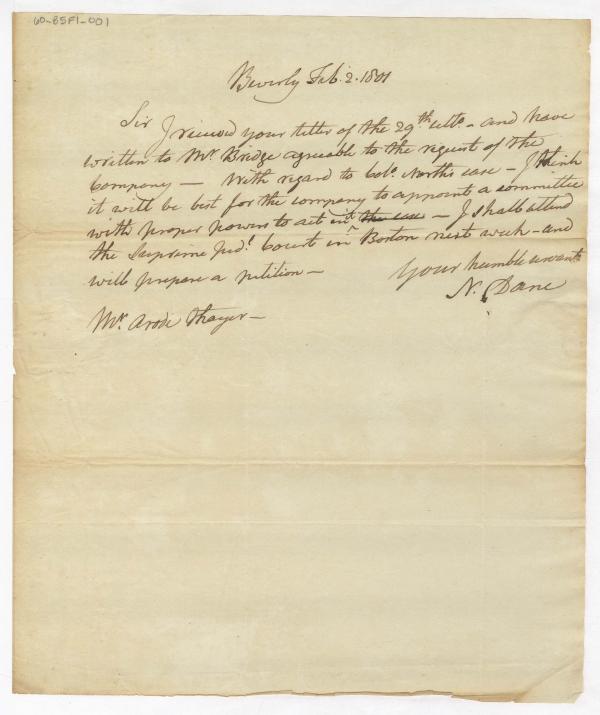 60-85F1-001
Beverly Feb. 2. 1801
Sir I received your letter of the 29th ulto. - and have
written to Mr. Bridge agreeable to the request of the
Company - With regard to Colo. North's case - I think
it will be best for the company to appoint a committee
with proper powers to act in it the case - I shall attend
the Supreme Jud.l Court in Boston next week - and
will prepare a petition -
Your humble servant
N. Dane
Mr. Arode Thayer -